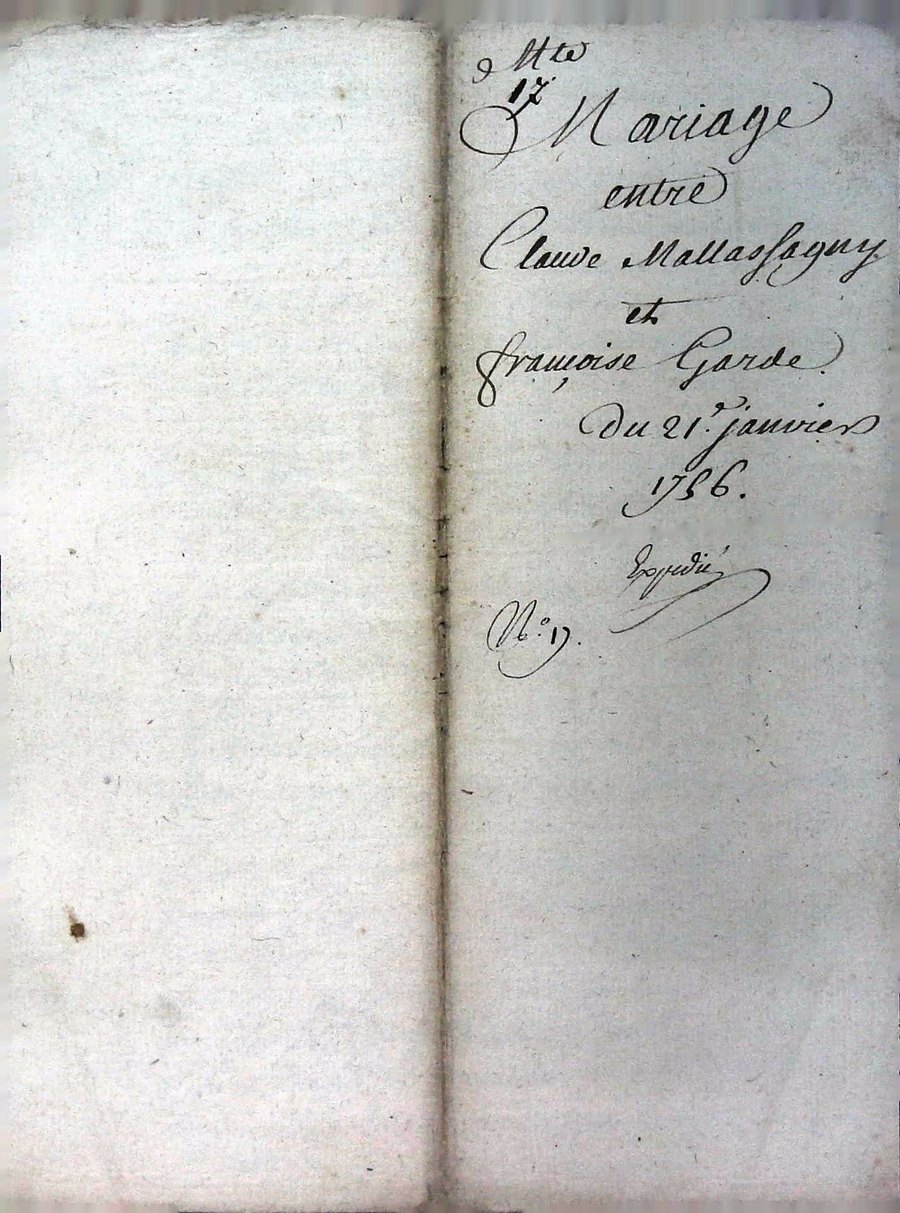 17
Mariage
entre
Claude Mallassagny
et
françoise Garde
Du 21.e janvier
1756.
Expedié
N.o 17.